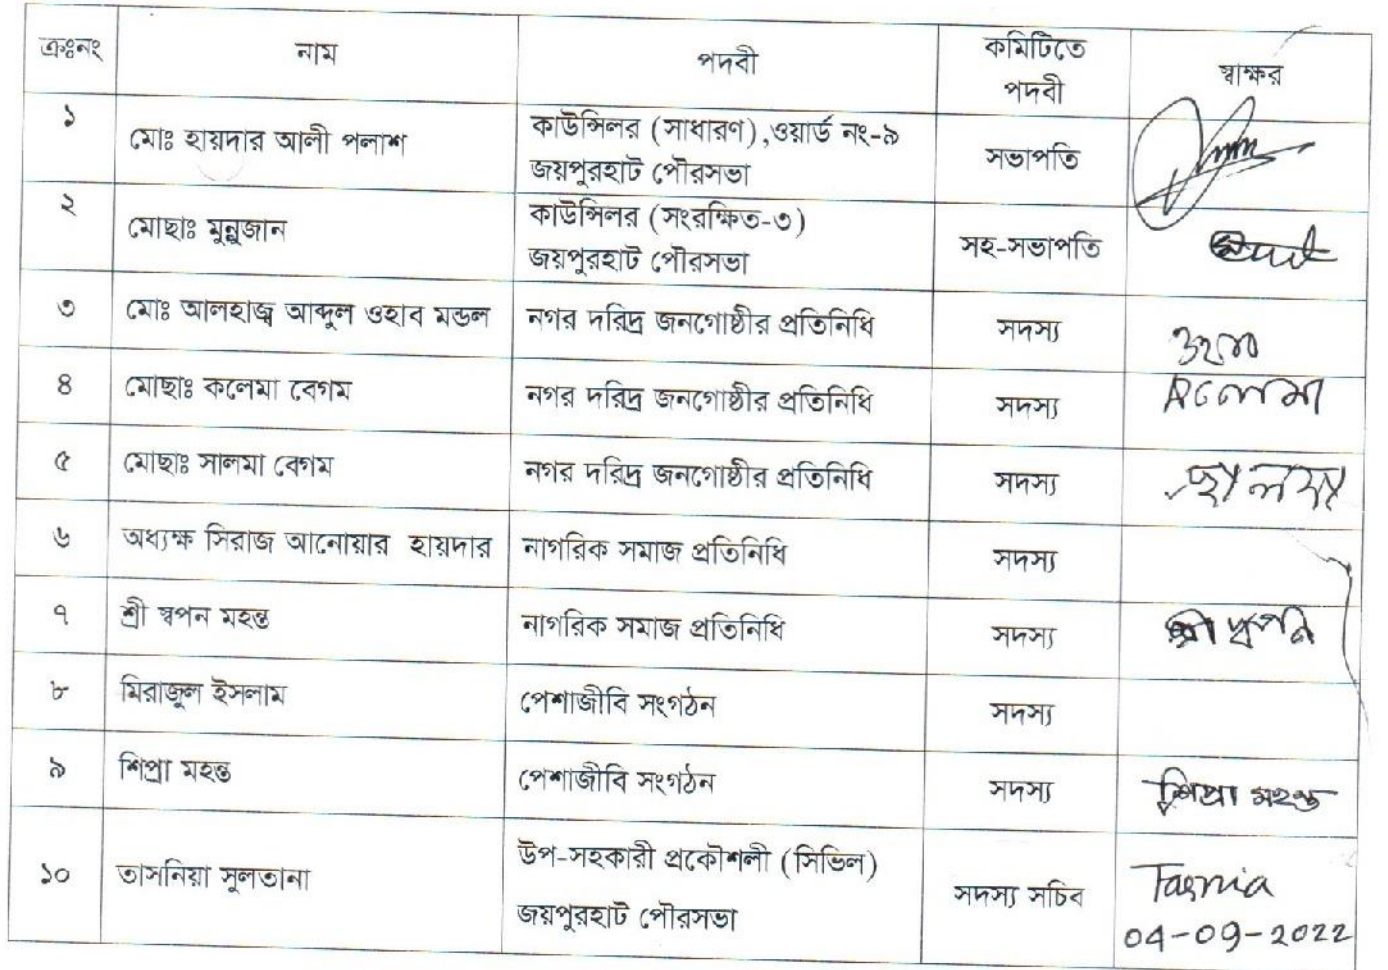 ক্রঃনং নাম পদবী কমিটিতে পদবী স্বাক্ষর
১ মোঃ হায়দার আলী পলাশ কাউন্সিলর (সাধারণ),ওয়ার্ড নং-৯
জয়পুরহাট পৌরসভা সভাপতি
২ মোছাঃ মুন্নুজান কাউন্সিলর (সংরক্ষিত-৩)
জয়পুরহাট পৌরসভা সহ-সভাপতি
৩ মোঃ আলহাজ্ব আব্দুল ওহাব মন্ডল নগর দরিদ্র জনগোষ্ঠীর প্রতিনিধি সদস্য
৪ মোছাঃ কলেমা বেগম নগর দরিদ্র জনগোষ্ঠীর প্রতিনিধি সদস্য কলেমা
৫ মোছাঃ সালমা বেগম নগর দরিদ্র জনগোষ্ঠীর প্রতিনিধি সদস্য ছালমা
৬ অধ্যক্ষ সিরাজ আনোয়ার হায়দার নাগরিক সমাজ প্রতিনিধি সদস্য
৭ শ্রী স্বপন মহন্ত নাগরিক সমাজ প্রতিনিধি সদস্য শ্রী স্বপন
৮ মিরাজুল ইসলাম পেশাজীবি সংগঠন সদস্য
৯ শিপ্রা মহন্ত পেশাজীবি সংগঠন সদস্য শিপ্রা মহন্ত
১০ তাসনিয়া সুলতানা উপ-সহকারী প্রকৌশলী (সিভিল)
জয়পুরহাট পৌরসভা সদস্য সচিব Tasnia
04-09-2022